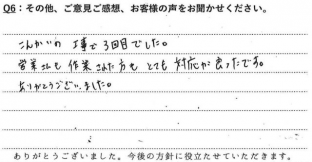 Q6：その他、ご意見ご感想、お客様の声をお聞かせください。
こんかいの 工事で3回目でした。
営業さんも 作業された方も とても 対応が良ったです。
ありがとうございました。
ありがとうございました。今後の方針に役立たせていただきます。